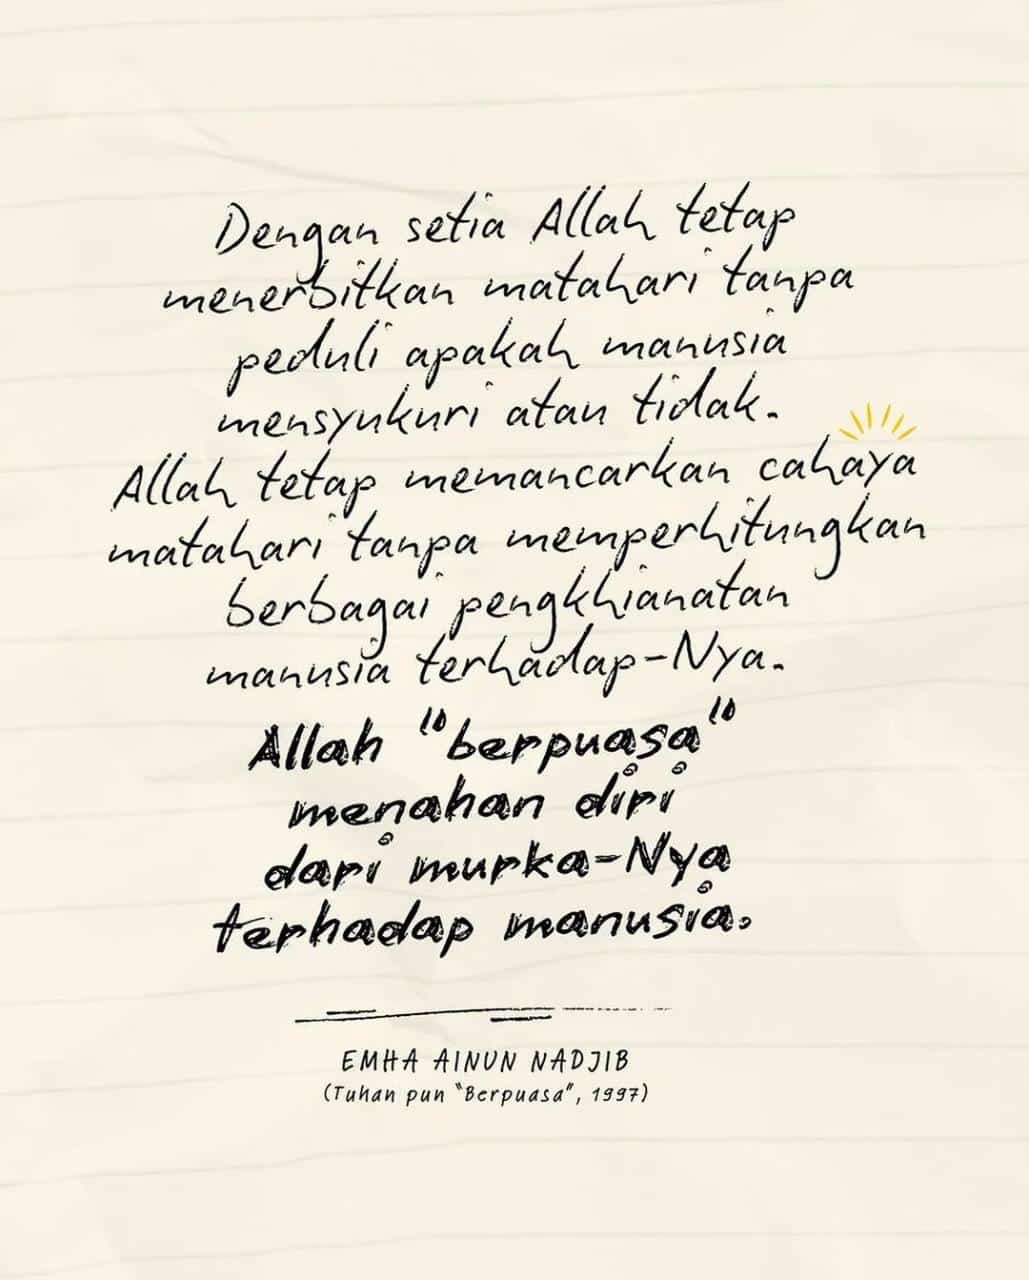 Dengan setia Allah tetap
menerbitkan matahari tanpa
peduli apakah manusia
mensyukuri atau tidak.
Allah tetap memancarkan cahaya
matahari tanpa memperhitungkan
berbagai pengkhianatan
manusia terhadap-Nya.
Allah "berpuasa"
menahan diri
dari murka-Nya
terhadap manusia.
EMHA AINUN NADJIB
(Tuhan pun "Berpuasa", 1997)